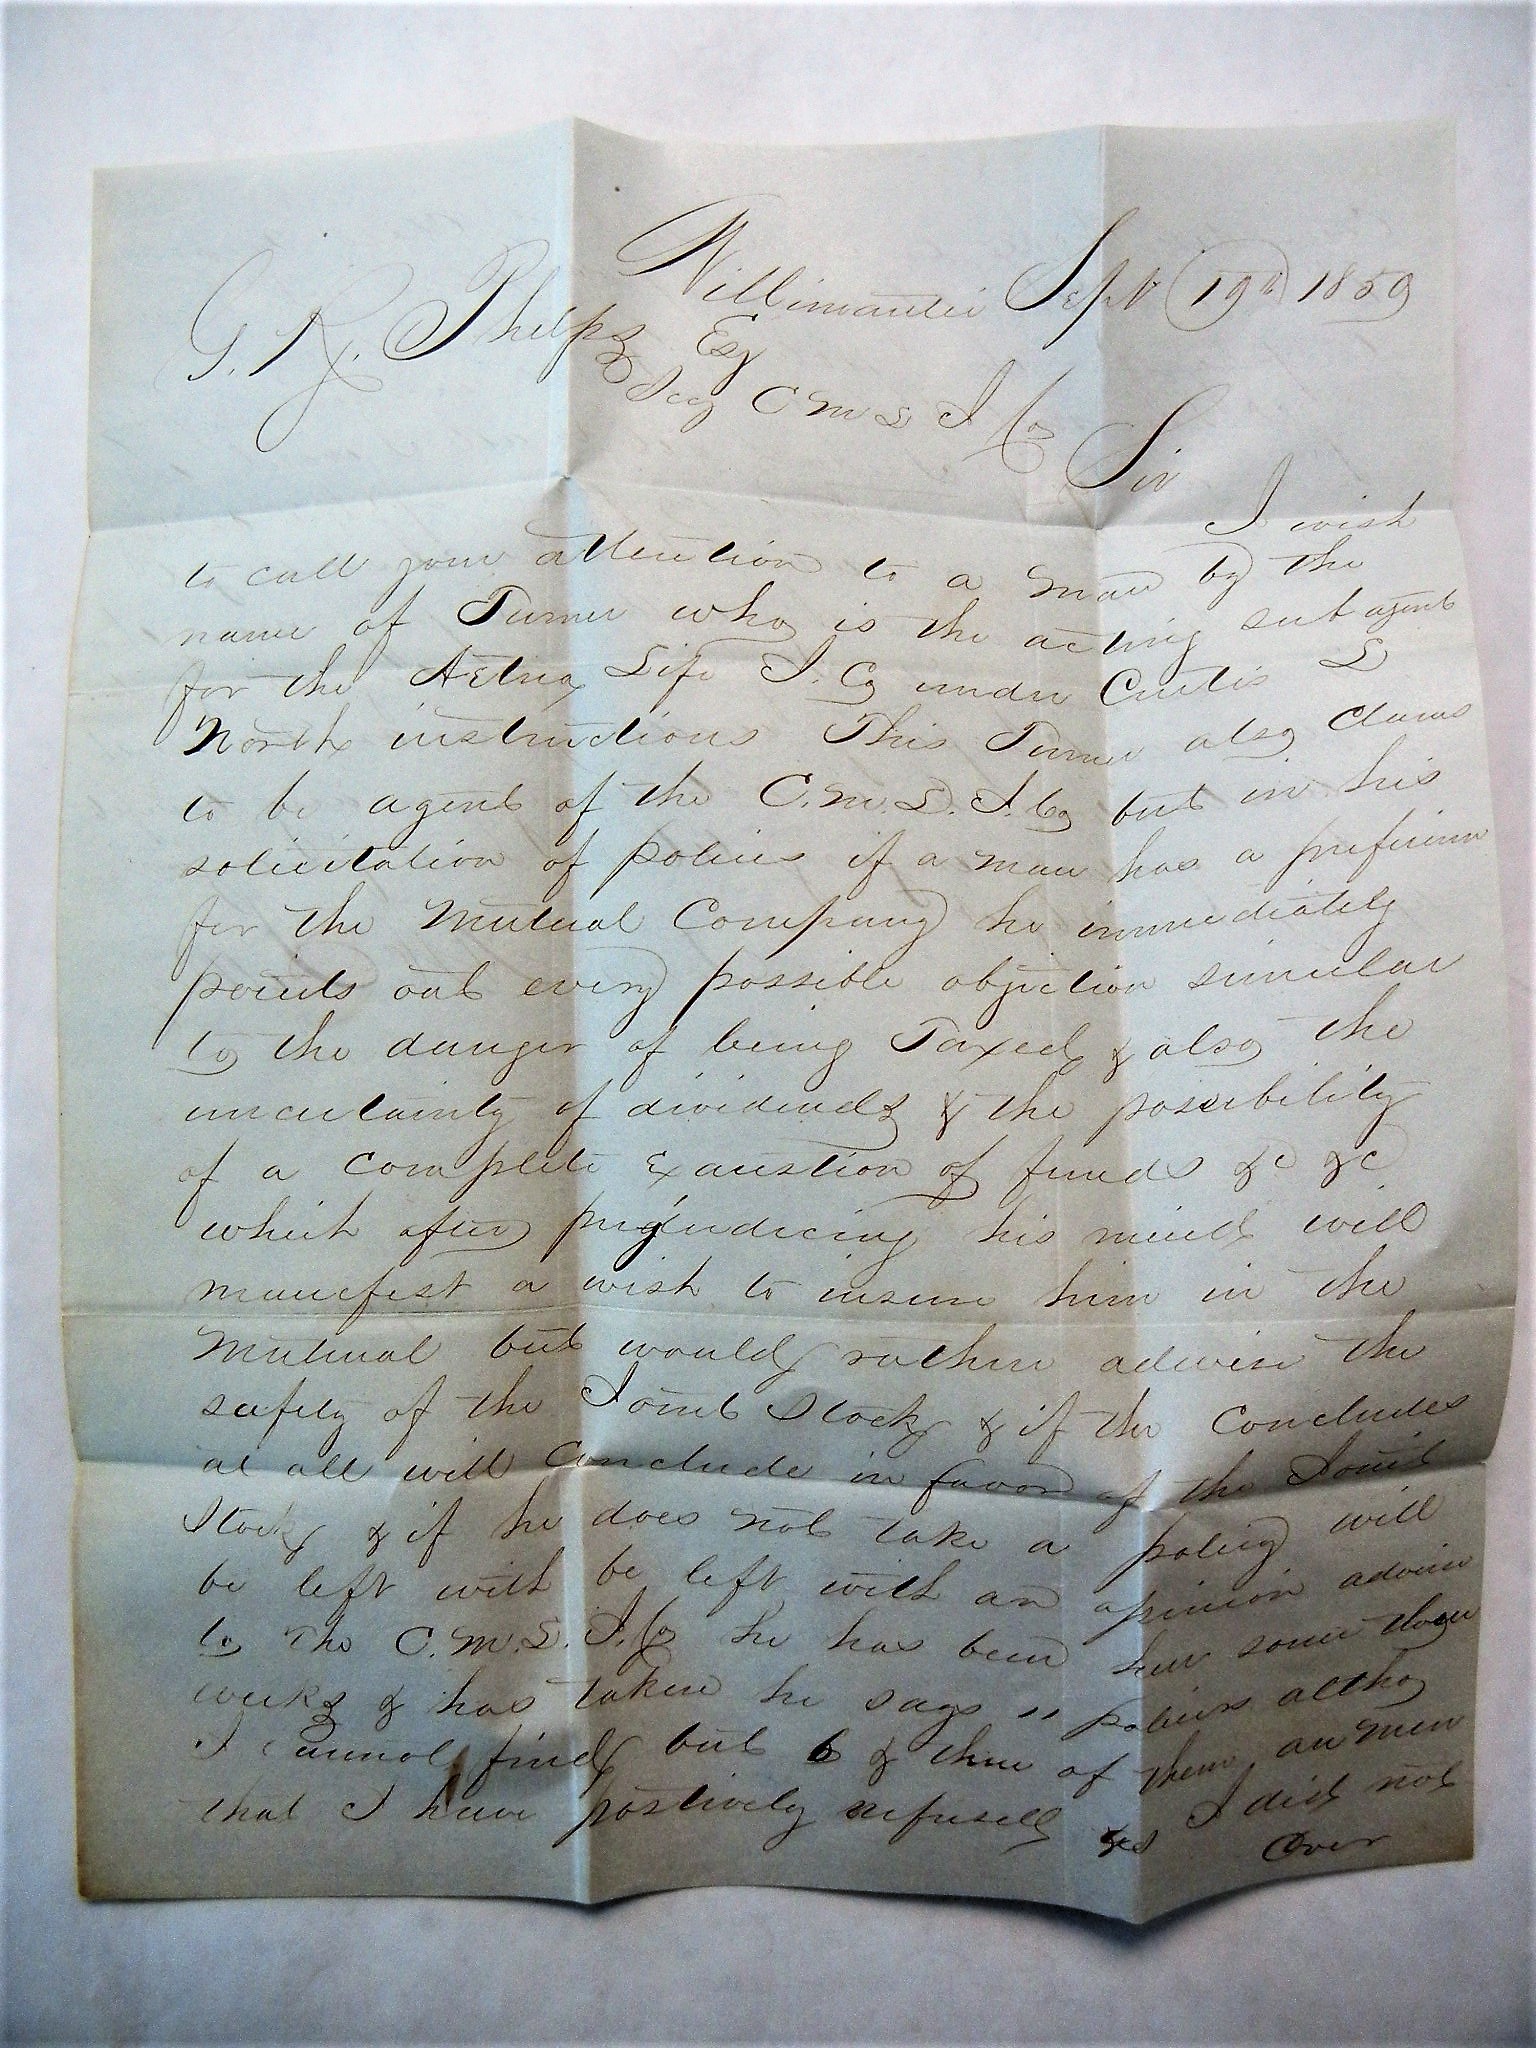 Willimantic Sept 19th 1859
G. R. Phelps Esq
Secy C M L I Co
Sir
I wish
to call your attention to a man by the
name of Turner who is the acting sub agent
for the Aetna Life I. Co under Curtis L
North instructions This Turner also claims
to be agent of the C. M. L. I. Co but in his
solicitation of policies if a man has a
for the Mutual Company he immediately
points out every possible objection similar
to the danger of being Taxed & also the
uncertainty of dividends & the possibility
of a complete exaustion of funds &c &c
which after prejudicing his mind will
manifest a wish to insure him in the
Mutual but would rather advise the
safety of the Joint Stock & if the concludes
at all will conclude in favor of the Joint
Stock & if he does not take a policy will
be left with be left with an opinion adverse
to the C. M. L. I. Co he has been here some three
weeks & has taken he says 11 policies altho
I cannot find but 6 & three of them are men
that I have postively refused I did not
Over